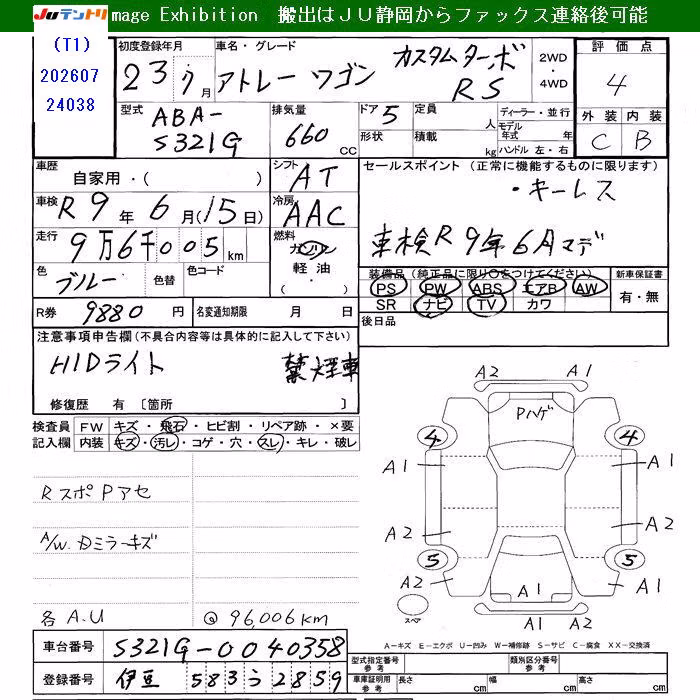 JUテントリ mage Exhibition 搬出はJU静岡からファックス連絡後可能
(T1)
202607
24038
初度登録年月
23年7月
車名・グレード
アトレーワゴン カスタムターボ
RS
2WD
・
4WD
評価点
4
外装 内装
C B
型式
ABA-
S321G
排気量
660 cc
ドア 5
形状
定員 人
積載 kg
ディーラー・並行
モデル年式 年
ハンドル 左・右
車歴
自家用・( )
シフト
AT
セールスポイント (正常に機能するものに限ります)
・キーレス
車検R9年6月マデ
車検
R9年6月(15日)
冷房
AAC
走行
9万6千005km
燃料
ガソリン
軽油
( ・ )
色
ブルー
色替
色コード
装備品 (純正品に限り○をつけてください)
PS PW ABS エアB AW
SR ナビ TV カワ
新車保証書
有・無
後日品
R券 9880円
名変通知期限 月 日
注意事項申告欄(不具合内容等は具体的に記入して下さい)
HIDライト 禁煙車
修復歴 有 〔箇所 〕
検査員
記入欄
FW キズ・飛石・ヒビ割・リペア跡・×要
内装 キズ・汚レ・コゲ・穴・スレ・キレ・破レ
RスポPアセ
A/W. Dミラーキズ
各A.U
@96,006km
A2 A1
Pハゲ
4 4
A1 A1
A2 A2
5 5
A2 A1 A1
A1 A2
スペア
A-キズ E-エクボ U-凹み W-補修跡 S-サビ C-腐食 XX-交換済
車台番号 S321G-0040358
登録番号 伊豆 583う2859
型式指定番号
参考
類別区分番号
参考
車庫証明用
参考
長さ cm
幅 cm
高さ cm